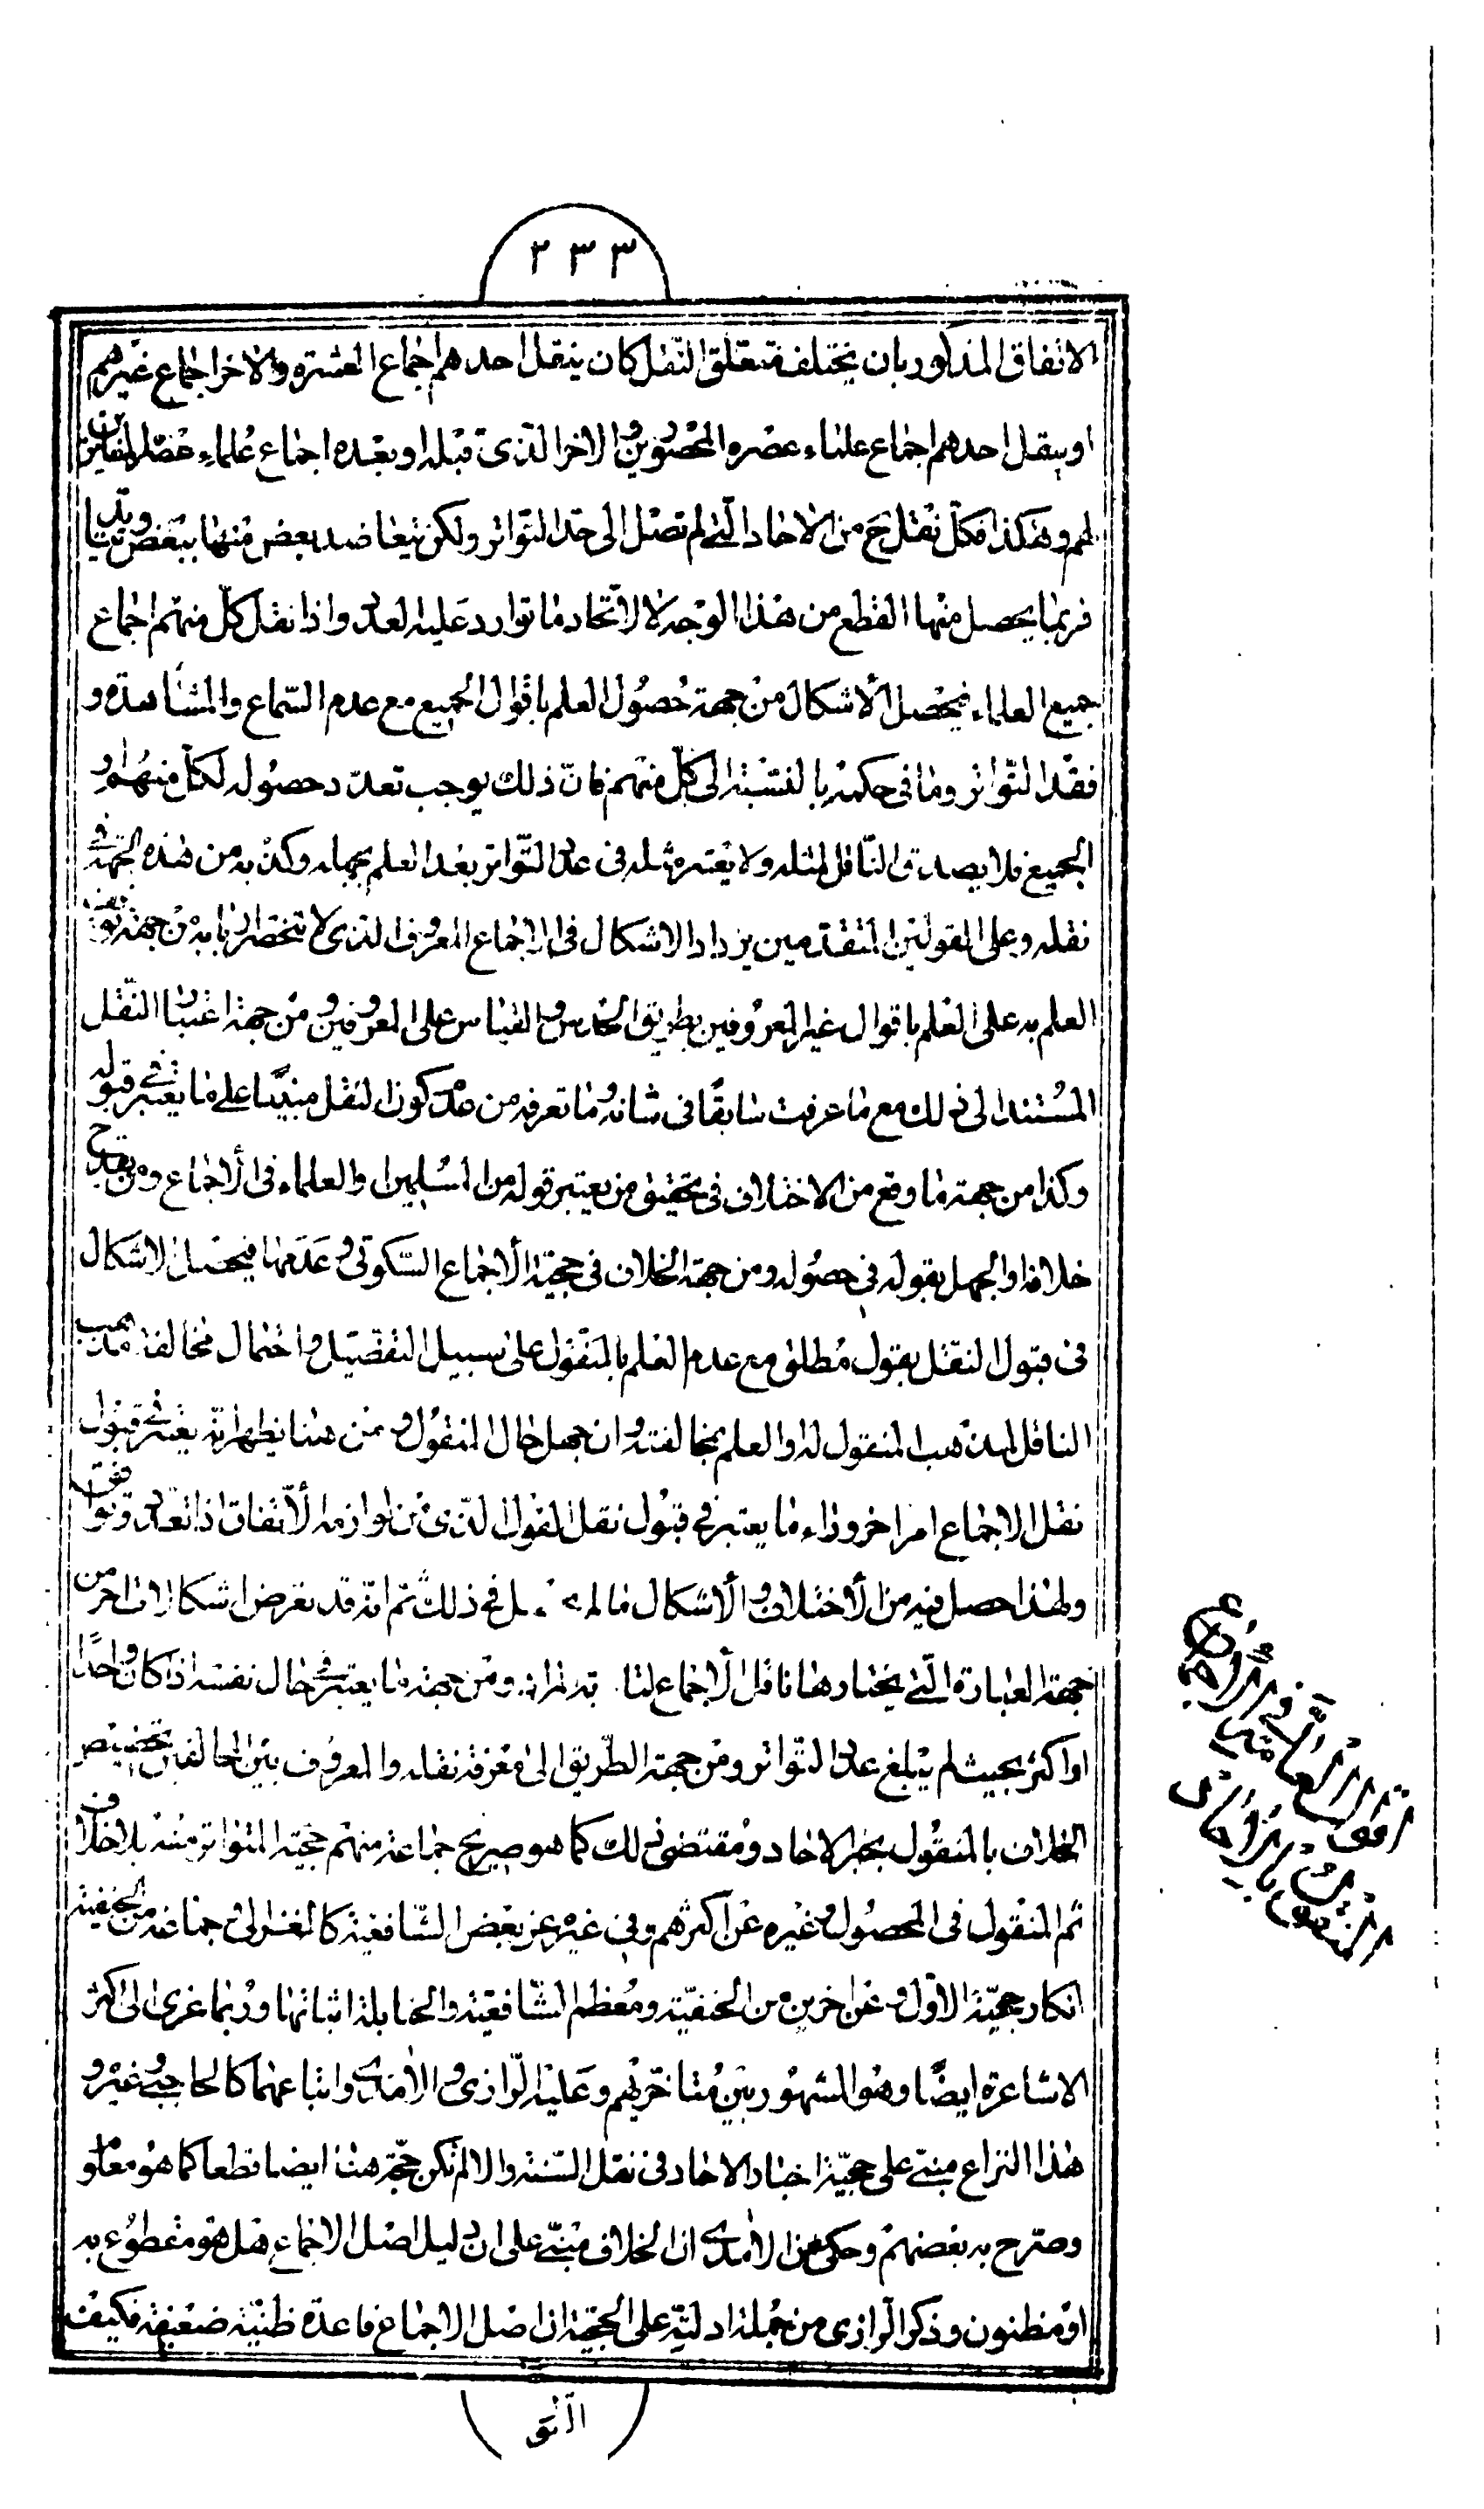 ٢٣٣
الاتفاق المذكور بان يختلف متعلق النقل كان ينقل احدهم اجماع العشرة والاخر اجماع غيرهم
او ينقل احدهم اجماع علماء عصره المخصوصين والاخر الذى قبله او بعده اجماع علماء عصر المغايرين
لهم وهكذا فكل نقل ح من الاحاد التى لم تصل الى حد التواتر ولكن يتعاضد بعض منها ببعض
فربما يحصل منها القطع من هذا الوجه لا لاتحاد ما توارد عليه العدد واذا نقل كل منهم اجماع
جميع العلماء فيحصل الاشكال من جهة حصول العلم باقوال الجميع مع عدم السماع والمشاهدة و
فقد التواتر وما فى حكمه بالنسبة الى كل منهم فان ذلك يوجب تعدد حصوله لكل منهم او
الجميع فلا يصدق الناقل لمثله ولا يعتبر مثله فى عدد التواتر بعد العلم بجهله وكذبه من هذه الجهة فى
نقله وعلى القولين المتقدمين يزداد الاشكال فى الاجماع المعروف الذى لا تنحصر اربابه من جهة توقف
العلم به على العلم باقوال غير المعروفين بطريق الحدس والقياس على المعروفين ومن جهة اعتبار النقل
المستند الى ذلك مع ما عرفت سابقا فى شانه وما تعرفه من عدم كون النقل مبنيا على ما يعتبر فى قبوله
وكذا من جهة ما وقع من الاختلاف فى تحقيق من يعتبر قوله من المسلمين والعلماء فى الاجماع ومن يقدح
خلافه او الجهل بقوله فى حصوله ومن جهة الخلاف فى حجية الاجماع السكوتى وعدمها فيحصل الاشكال
فى قبول النقل بقول مطلق مع عدم العلم بالمنقول على سبيل التفصيل واحتمال مخالفة مذهب
الناقل لمذهب المنقول له او العلم بمخالفته وان جهل حال المنقول ومن هنا يظهر انه يعتبر فى قبول
نقل الاجماع امر اخر وراء ما يعتبر فى قبول نقل القول الذى من لوازمه الاتفاق اذا تعدد وتوافق
ولهذا حصل فيه من الاختلاف والاشكال ما لم يحصل فى ذلك ثم انه قد يعرض اشكالات اخر من
جهة العبارة التى يختارها ناقل الاجماع ومن جهة ما يعتبر فى حال نفسه اذا كان واحدا
او اكثر بحيث لم يبلغ عدد التواتر ومن جهة الطريق الى معرفة نقله والمعروف بين المخالفين تخصيص
الخلاف بالمنقول بخبر الاحاد ومقتضى ذلك كما هو صريح جماعة منهم حجية المتواتر منه بلا خلاف
ثم المنقول فى المحصول وغيره عن اكثرهم وفى غيره عن بعض الشافعية كالغزالى وجماعة من الحنفية
انكار حجية الاول وعن اخرين من الحنفية ومعظم الشافعية والحنابلة اثباتها وربما عزى الى اكثر
الاشاعرة ايضا وهو المشهور بين متاخريهم وعليه الرازى والامدى واتباعهما كالحاجبى وغيره و
هذا النزاع مبنى على حجية اخبار الاحاد فى نقل السنة والا لم تكن حجة هنا ايضا قطعا كما هو معلوم
وصرح به بعضهم وحكى عن الامدى ان الخلاف مبنى على ان دليل اصل الاجماع هل هو مقطوع به
او مظنون وذكر الرازى من جملة ادلته على الحجية ان اصل الاجماع قاعدة ظنية ضعيفة فكيف